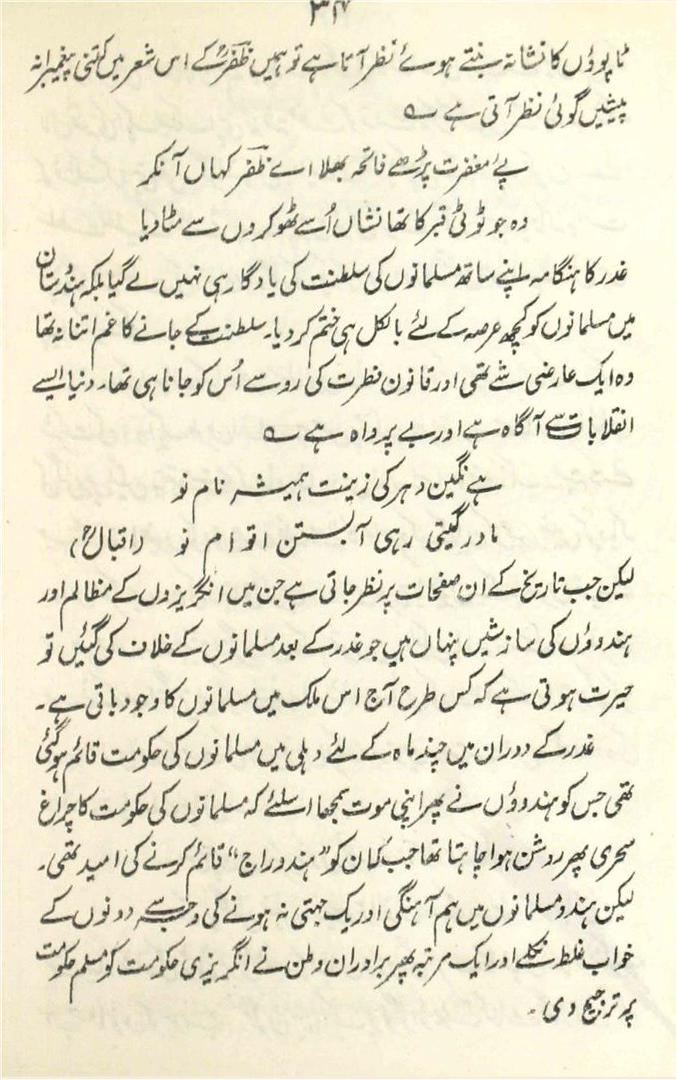 ۳۴
ٹاپوؤں کا نشانہ بنتے ہوئے نظر آتا ہے تو ہمیں ظفرؔ کے اس شعر میں کتنی پیغمبرانہ
پیشیں گوئی نظر آتی ہے ؎
پئے مغفرت پڑھے فاتحہ بھلا اے ظفرؔ کہاں آنکر
وہ جو ٹوٹی قبر کا تھا نشاں اُسے ٹھوکروں سے مٹا دیا
غدر کا ہنگامہ اپنے ساتھ مسلمانوں کی سلطنت کی یادگار ہی نہیں لے گیا بلکہ ہندوستان
میں مسلمانوں کو کچھ عرصہ کے لئے بالکل ہی ختم کر دیا۔ سلطنت کے جانے کا غم اتنا نہ تھا
وہ ایک عارضی شے تھی اور قانون فطرت کی رو سے اُس کو جانا ہی تھا۔ دنیا ایسے
انقلابات سے آگاہ ہے اور بے پرواہ ہے ؎
ہے نگین دہر کی زینت ہمیشہ نام نو
مادر گیتی رہی آبستن اقوام نو (اقبالؒ)
لیکن جب تاریخ کے ان صفحات پر نظر جاتی ہے جن میں انگریزوں کے مظالم اور
ہندوؤں کی سازشیں پنہاں ہیں جو غدر کے بعد مسلمانوں کے خلاف کی گئیں تو
حیرت ہوتی ہے کہ کس طرح آج اس ملک میں مسلمانوں کا وجود باقی ہے۔
غدر کے دوران میں چند ماہ کے لئے دہلی میں مسلمانوں کی حکومت قائم ہو گئی
تھی جس کو ہندوؤں نے پھر اپنی موت سمجھا اسلئے کہ مسلمانوں کی حکومت کا چراغ
سحری پھر روشن ہوا چاہتا تھا جب کہ ان کو "ہندو راج" قائم کرنے کی امید تھی۔
لیکن ہندو مسلمانوں میں ہم آہنگی اور یک جہتی نہ ہونے کی وجہ سے دونوں کے
خواب غلط نکلے اور ایک مرتبہ پھر برادران وطن نے انگریزی حکومت کو مسلم حکومت
پر ترجیح دی۔